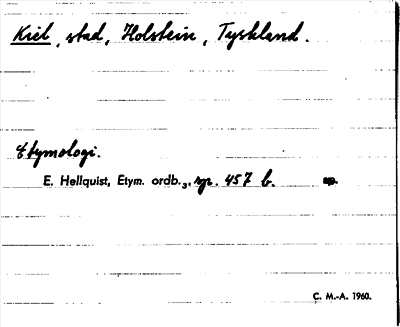 Kiel, stad, Holstein, Tyskland.
Etymologi.
E. Hellquist, Etym. ordb.3, sp. 457 b.
C. M.-A. 1960.